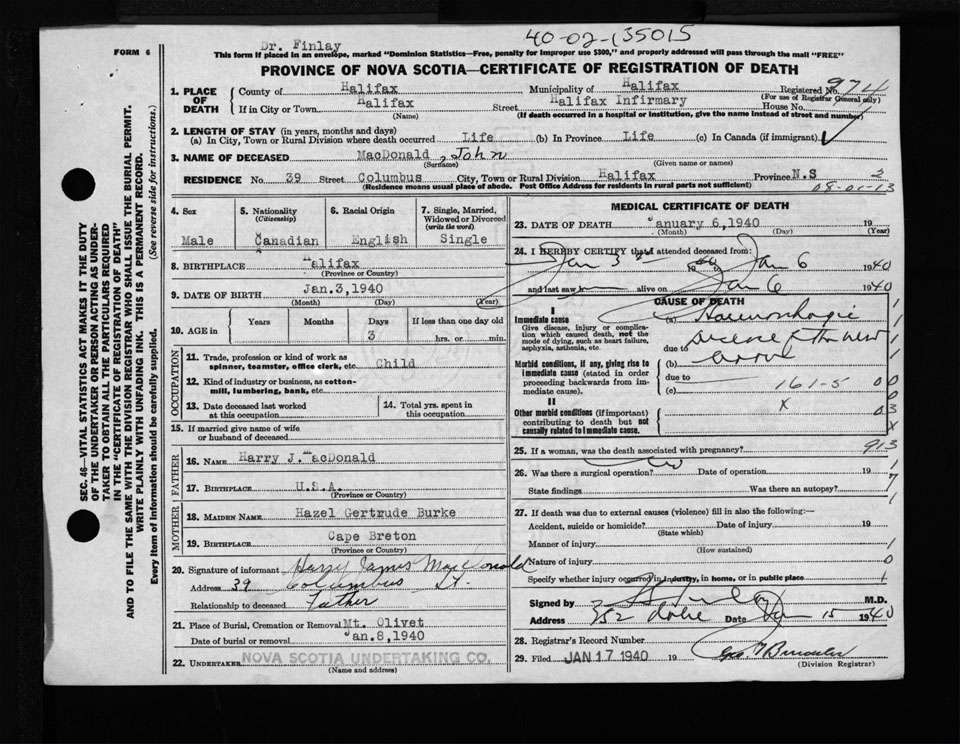 40-02-135015
Dr. Finlay
FORM 6
This form if placed in an envelope, marked "Dominion Statistics—Free, penalty for improper use $300," and properly addressed will pass through the mail "FREE"
PROVINCE OF NOVA SCOTIA—CERTIFICATE OF REGISTRATION OF DEATH
1. PLACE OF DEATH
County of Halifax Municipality of Halifax Registered No. 974
(For use of Registrar General only)
If in City or Town Halifax Street Halifax Infirmary House No.
(Name) (If death occurred in a hospital or institution, give the name instead of street and number)
2. LENGTH OF STAY (in years, months and days)
(a) In City, Town or Rural Division where death occurred Life (b) In Province Life (c) In Canada (if immigrant)
3. NAME OF DECEASED MacDonald, John
(Surname) (Given name or names)
RESIDENCE No. 39 Street Columbus City, Town or Rural Division Halifax Province N.S 2
(Residence means usual place of abode. Post Office Address for residents in rural parts not sufficient)
08-01-13
4. Sex Male
5. Nationality (Citizenship) Canadian
6. Racial Origin English
7. Single, Married, Widowed or Divorced (write the word) Single
8. BIRTHPLACE Halifax
(Province or Country)
9. DATE OF BIRTH Jan.3,1940
(Month) (Day) (Year)
10. AGE in Years Months Days 3 If less than one day old hrs. or min.
OCCUPATION
11. Trade, profession or kind of work as spinner, teamster, office clerk, etc. Child
12. Kind of industry or business, as cotton-mill, lumbering, bank, etc.
13. Date deceased last worked at this occupation
14. Total yrs. spent in this occupation
15. If married give name of wife or husband of deceased
FATHER
16. NAME Harry J. MacDonald
17. BIRTHPLACE U.S.A.
(Province or Country)
MOTHER
18. MAIDEN NAME Hazel Gertrude Burke
19. BIRTHPLACE Cape Breton
(Province or Country)
20. Signature of informant Harry James MacDonald
Address 39 Columbus St.
Relationship to deceased Father
21. Place of Burial, Cremation or Removal Mt. Olivet
Date of burial or removal Jan.8,1940
22. UNDERTAKER NOVA SCOTIA UNDERTAKING CO.
(Name and address)
MEDICAL CERTIFICATE OF DEATH
23. DATE OF DEATH January 6,1940 19
(Month) (Day) (Year)
24. I HEREBY CERTIFY that I attended deceased from:
Jan 3 1940 to Jan 6 1940
and last saw h alive on Jan 6 1940
CAUSE OF DEATH
I
Immediate cause (a) Haemorrhagic
Give disease, injury or complication which caused death, not the mode of dying, such as heart failure, asphyxia, asthenia, etc.
due to
Morbid conditions, if any, giving rise to immediate cause (stated in order proceeding backwards from immediate cause).
(b)
due to
(c) 161-5
II
Other morbid conditions (if important) contributing to death but not causally related to immediate cause.
X
25. If a woman, was the death associated with pregnancy? 913
26. Was there a surgical operation? Date of operation 19
State findings Was there an autopsy?
27. If death was due to external causes (violence) fill in also the following:—
Accident, suicide or homicide? Date of injury 19
(State which)
Manner of injury
(How sustained)
Nature of injury
Specify whether injury occurred in industry, in home, or in public place
Signed by M.D.
Address 352 Date Jan 15 1940
28. Registrar's Record Number
29. Filed JAN 17 1940 19
(Division Registrar)
SEC. 46—VITAL STATISTICS ACT MAKES IT THE DUTY
OF THE UNDERTAKER OR PERSON ACTING AS UNDERTAKER TO OBTAIN ALL THE PARTICULARS REQUIRED
IN THE "CERTIFICATE OF REGISTRATION OF DEATH"
AND TO FILE THE SAME WITH THE DIVISION REGISTRAR WHO SHALL ISSUE THE BURIAL PERMIT.
WRITE PLAINLY WITH UNFADING INK. THIS IS A PERMANENT RECORD.
Every item of information should be carefully supplied. (See reverse side for instructions.)